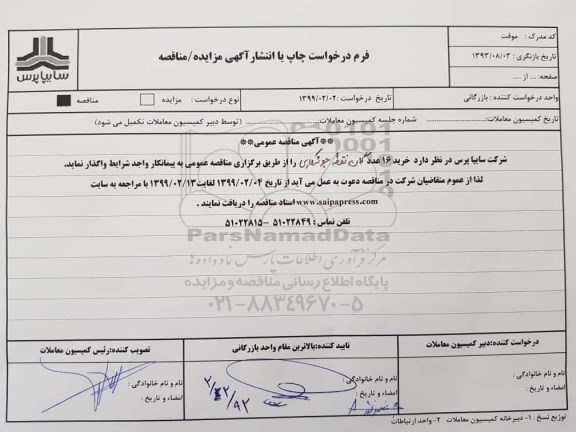 سایپا پرس
فرم درخواست چاپ یا انتشار آگهی مزایده/مناقصه
کد مدرک : موقت
تاریخ بازنگری : ۱۳۹۳/۰۸/۰۳
صفحه: ... از ....
واحد درخواست کننده : بازرگانی
تاریخ درخواست :۱۳۹۹/۰۲/۰۲
نوع درخواست : مزایده مناقصه
تاریخ کمیسیون معاملات: شماره جلسه کمیسیون معاملات: (توسط دبیر کمیسیون معاملات تکمیل می شود)
**آگهی مناقصه عمومی**
شرکت سایپا پرس در نظر دارد خرید ۱۶ عدد گان نقطه جوشکاری را از طریق برگزاری مناقصه عمومی به پیمانکار واجد شرایط واگذار نماید.
لذا از عموم متقاضیان شرکت در مناقصه دعوت به عمل می آید از تاریخ ۱۳۹۹/۰۲/۰۴ لغایت ۱۳۹۹/۰۲/۱۳ با مراجعه به سایت
www.saipapress.com اسناد مناقصه را دریافت نمایند .
تلفن تماس : ۵۱۰۲۲۸۴۹ – ۵۱۰۲۲۸۱۵
ParsNamadData
مرکز فرآوری اطلاعات پارس نماد داده ها
پایگاه اطلاع رسانی مناقصه و مزایده
۰۲۱-۸۸۳۴۹۶۷۰-۵
درخواست کننده:دبیر کمیسیون معاملات
تایید کننده:بالاترین مقام واحد بازرگانی
تصویب کننده:رئیس کمیسیون معاملات
نام و نام خانوادگی :
امضاء و تاریخ :
نام و نام خانوادگی :
امضاء و تاریخ :
نام و نام خانوادگی :
امضاء و تاریخ :
توزیع نسخ : ۱- دبیرخانه کمیسیون معاملات ۲- واحد ارتباطات